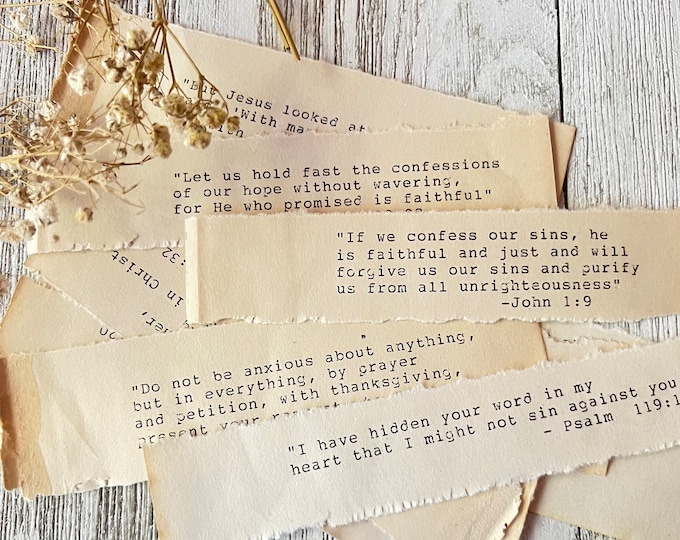 "But Jesus looked at
'With ma
"Let us hold fast the confessions
of our hope without wavering,
for He who promised is faithful"
"If we confess our sins, he
is faithful and just and will
forgive us our sins and purify
us from all unrighteousness"
-John 1:9
:32
in Christ
"Do not be anxious about anything,
but in everything, by prayer
and petition, with thanksgiving,
present your
"I have hidden your word in my
heart that I might not sin against you
- Psalm 119:1